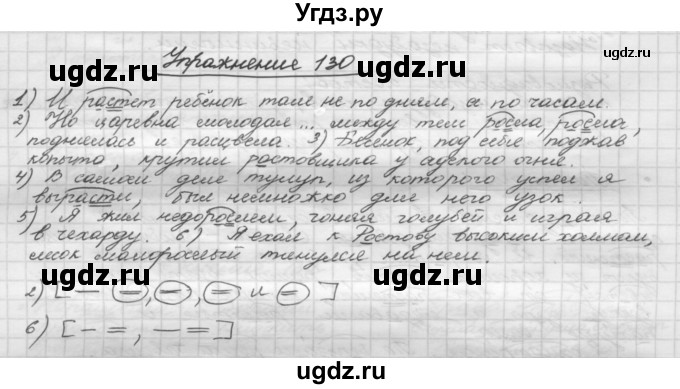 Угдз.ру
Упражнение 130
угдз.ру
1) И растёт ребёнок там не по дням, а по часам.
2) Но царевна молодая... между тем росла, росла,
поднялась и расцвела. 3) Бесёнок, под себя поджав
копыта, крутил ростовщика у адского огня.
4) В самом деле тулуп, из которого успел я
вырасти, был немножко для него узок.
5) Я жил недорослем, гоняя голубей и играя
в чехарду. 6) Я ехал к Ростову высоким холмам,
лесок малорослый тянулся на нем.
2) [— =, =, = и =]
угдз.ру
6) [— =, — =]
угдз.ру
угдз.ру